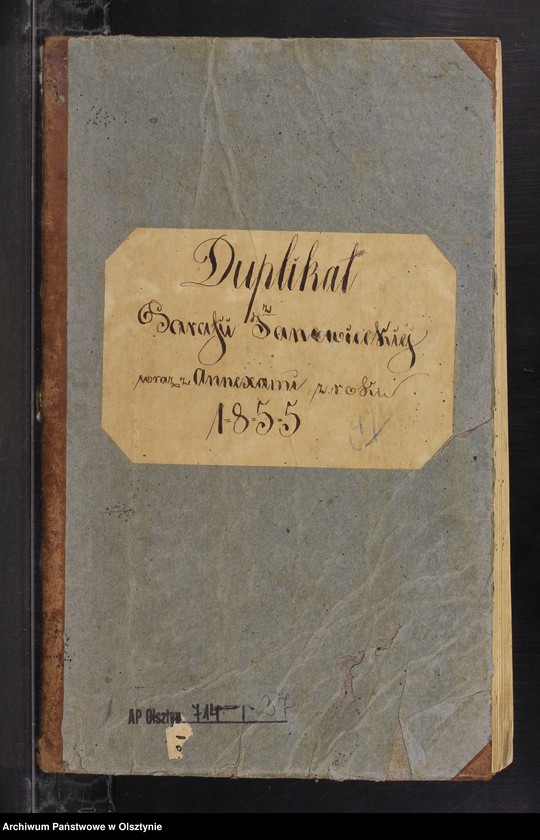 Duplikat
z
Parafii Janowieckiéj
wraz z Annexami z roku
1-8-5-5
AP Olsztyn 714-1-37
Archiwum Państwowe w Olsztynie